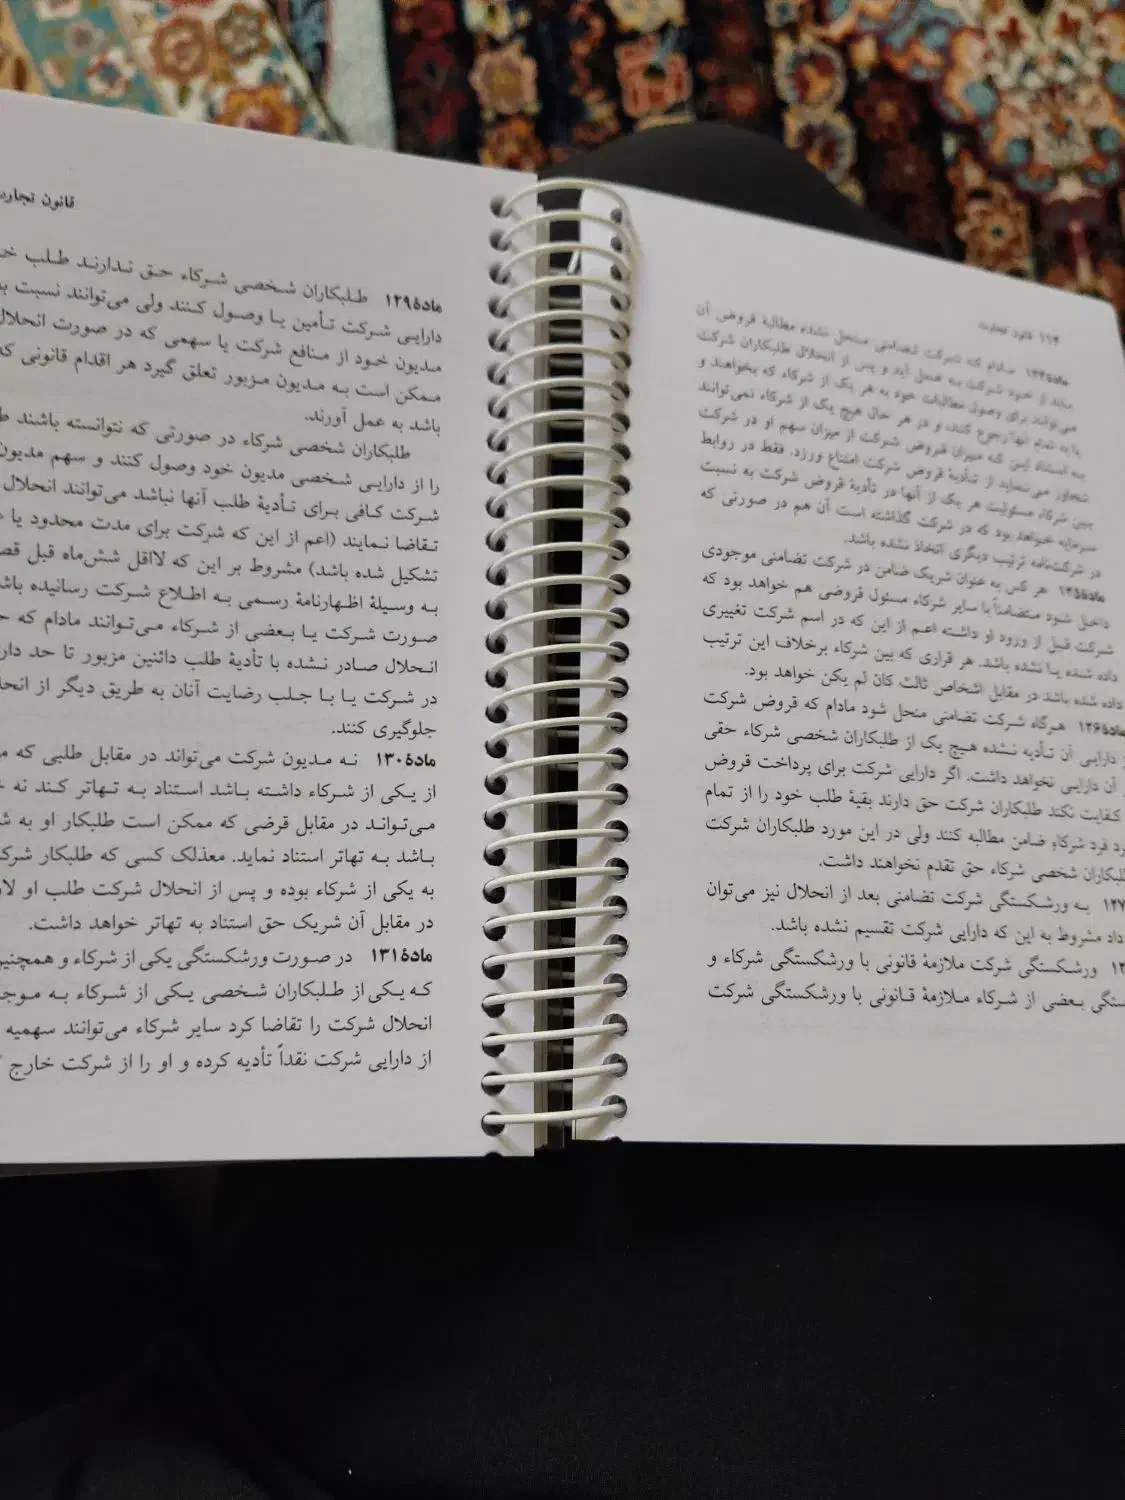 ۱۱۴ قانون تجارت
ماده۱۲۴ مـادام که شرکت تـضامنی منحل نشده مطالبهٔ قروض آن
باید از خـود شرکت بـه عـمل آید و پس از انحلال طلبکاران شرکت
می‌توانند برای وصول مطالبات خود به هر یک از شرکاء که بخواهند و
یا به تمام آنها رجوع کنند، و در هر حال هیچ یک از شرکاء نمی‌توانند
بـه استناد این کـه میزان قـروض شرکت از میزان سهم او در شرکت
تـجاوز مـی‌نماید از تـأدیهٔ قروض شرکت امتناع ورزد. فقط در روابط
بـین شرکاء مسئولیت هر یک از آنها در تأدیهٔ قروض شرکت به نسبت
سـرمایه خـواهد بود که در شرکت گذاشته است آن هم در صورتی که
در شرکت‌نامه ترتیب دیگری اتخاذ نشده باشد.
ماده۱۲۵ هر کس به عنوان شریک ضامن در شرکت تضامنی موجودی
داخـل شـود متضامناً با سایر شرکاء مسئول قروضی هم خواهد بود که
شرکت قبل از ورود او داشته اعـم از این که در اسم شرکت تغییری
داده شـده یـا نشده باشد. هر قراری که بین شرکاء برخلاف این ترتیب
داده شده باشد در مقابل اشخاص ثالث کان لم یکن خواهد بود.
ماده۱۲۶ هـرگاه شـرکت تضامنی منحل شود مادام که قروض شرکت
دارایـی آن تـأدیه نـشده هیچ یک از طلبکاران شخصی شرکاء حقی
آن دارایـی نـخواهد داشت. اگر دارایی شرکت برای پرداخت قروض
کـفایت نکند طلبکاران شرکت حق دارند بقیهٔ طلب خود را از تمام
فرد شرکاءِ ضامن مطالبه کنند ولی در این مورد طلبکاران شرکت
طلبکاران شخصی شرکاء حق تقدم نخواهند داشت.
بـه ورشـکستگی شرکت تضامنی بعد از انحلال نیز می‌توان
داد مشروط به این که دارایی شرکت تقسیم نشده باشد.
ورشـکستگی شرکت ملازمهٔ قانونی با ورشکستگی شرکاء و
بـعضی از شـرکاء مـلازمهٔ قـانونی با ورشکستگی شرکت
قانون تجارت
ماده۱۲۹ طـلبکاران شـخصی شـرکاء حـق نـدارنـد طـلب
دارایـی شـرکت تـأمین یـا وصـول کـنند ولی می‌توانند نسبت
مـدیون خـود از مـنافع شرکت یا سهمی که در صورت انحلال
مـمکن است بـه مـدیون مـزبور تعلق گیرد هر اقدام قانونی که
باشد به عمل آورند.
طلبکاران شخصی شرکاء در صورتی که نتوانسته باشند
را از دارایـی شـخصی مدیون خود وصول کنند و سهم مدیون
شـرکت کـافی بـرای تـأدیهٔ طلب آنها نباشد می‌توانند انحلال
تـقاضا نـمایند (اعم از این که شرکت برای مدت محدود یا
تشکیل شده باشد) مشروط بر این که لااقل شش‌ماه قبل
بـه وسیلهٔ اظـهارنامهٔ رسـمی بـه اطـلاع شـرکت رسانیده
صورت شرکت یـا بـعضی از شـرکاء مـی‌تـوانند مادام که
انـحلال صـادر نـشده با تأدیهٔ طلب دائنین مزبور تا حد
در شـرکت یـا بـا جـلب رضـایت آنان به طریق دیگر از
جلوگیری کنند.
ماده۱۳۰ نـه مـدیون شـرکت می‌تواند در مقابل طلبی که
از یـکی از شـرکاء داشـته بـاشد استناد بـه تـهاتر کـند نه
مـی‌تـوانـد در مقابل قرضی که ممکن است طلبکار او به
بـاشد بـه تهاتر استناد نماید. معذلک کسی که طلبکار
به یکی از شرکاء بوده و پس از انحلال شرکت طلب او
در مقابل آن شریک حق استناد به تهاتر خواهد داشت.
ماده۱۳۱ در صـورت ورشکستگی یکی از شرکاء و همچنین
کـه یکی از طـلبکاران شـخصی یـکی از شـرکاء بـه
انحلال شرکت را تقاضا کرد سایر شرکاء می‌توانند سهمیه
از دارایی شرکت نقداً تأدیه کرده و او را از شرکت خارج